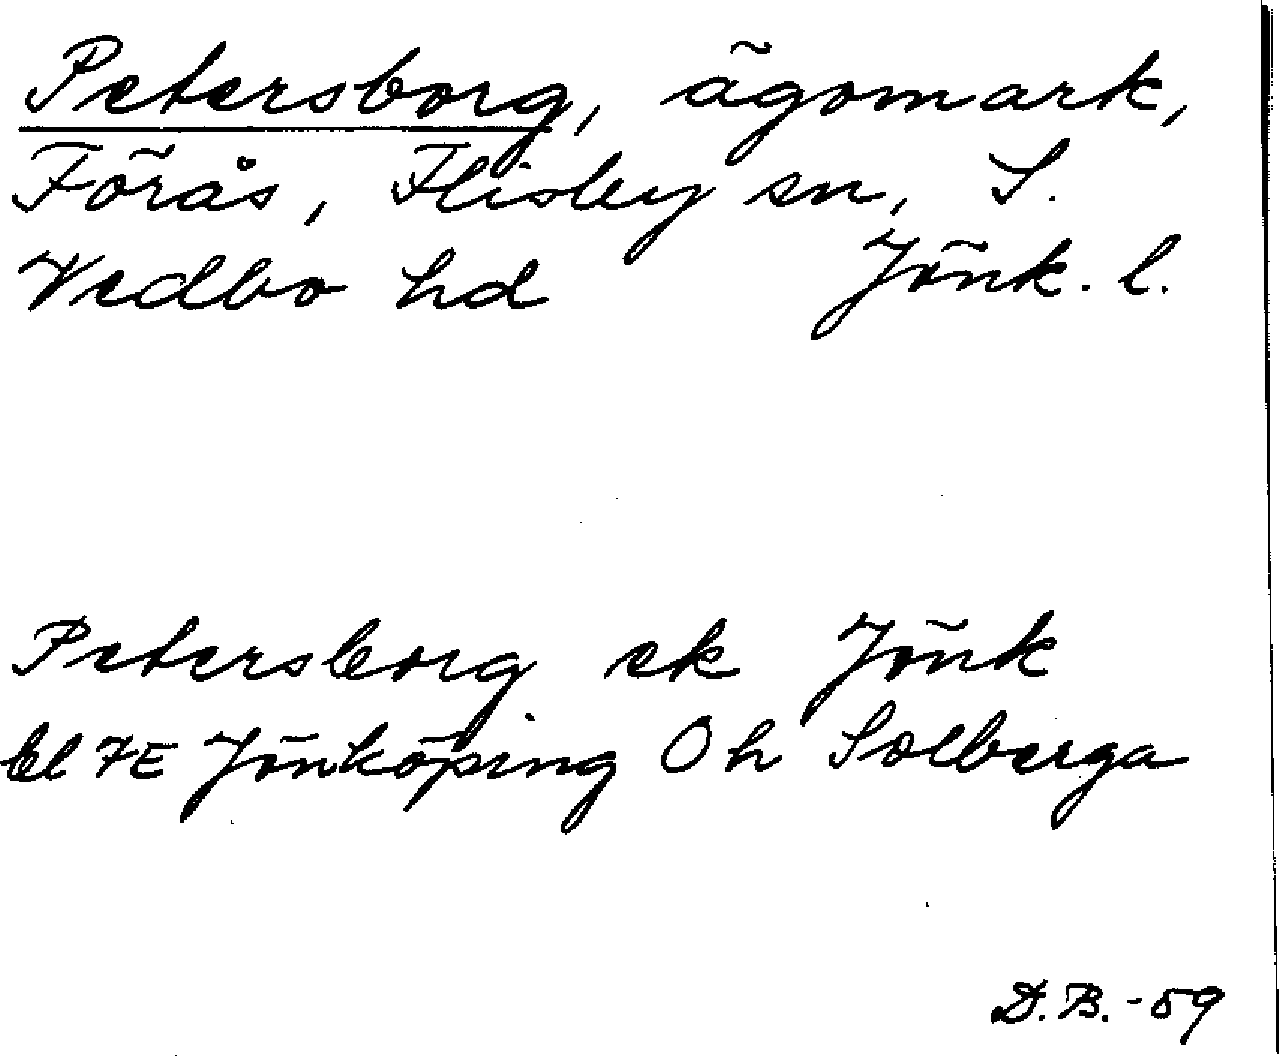 Petersborg, ägomark,
Förås, Flisby sn, S.
Vedbo hd Jönk. l.
Petersborg ek Jönk
bl 7E Jönköping Öh Solberga
D.B. -59